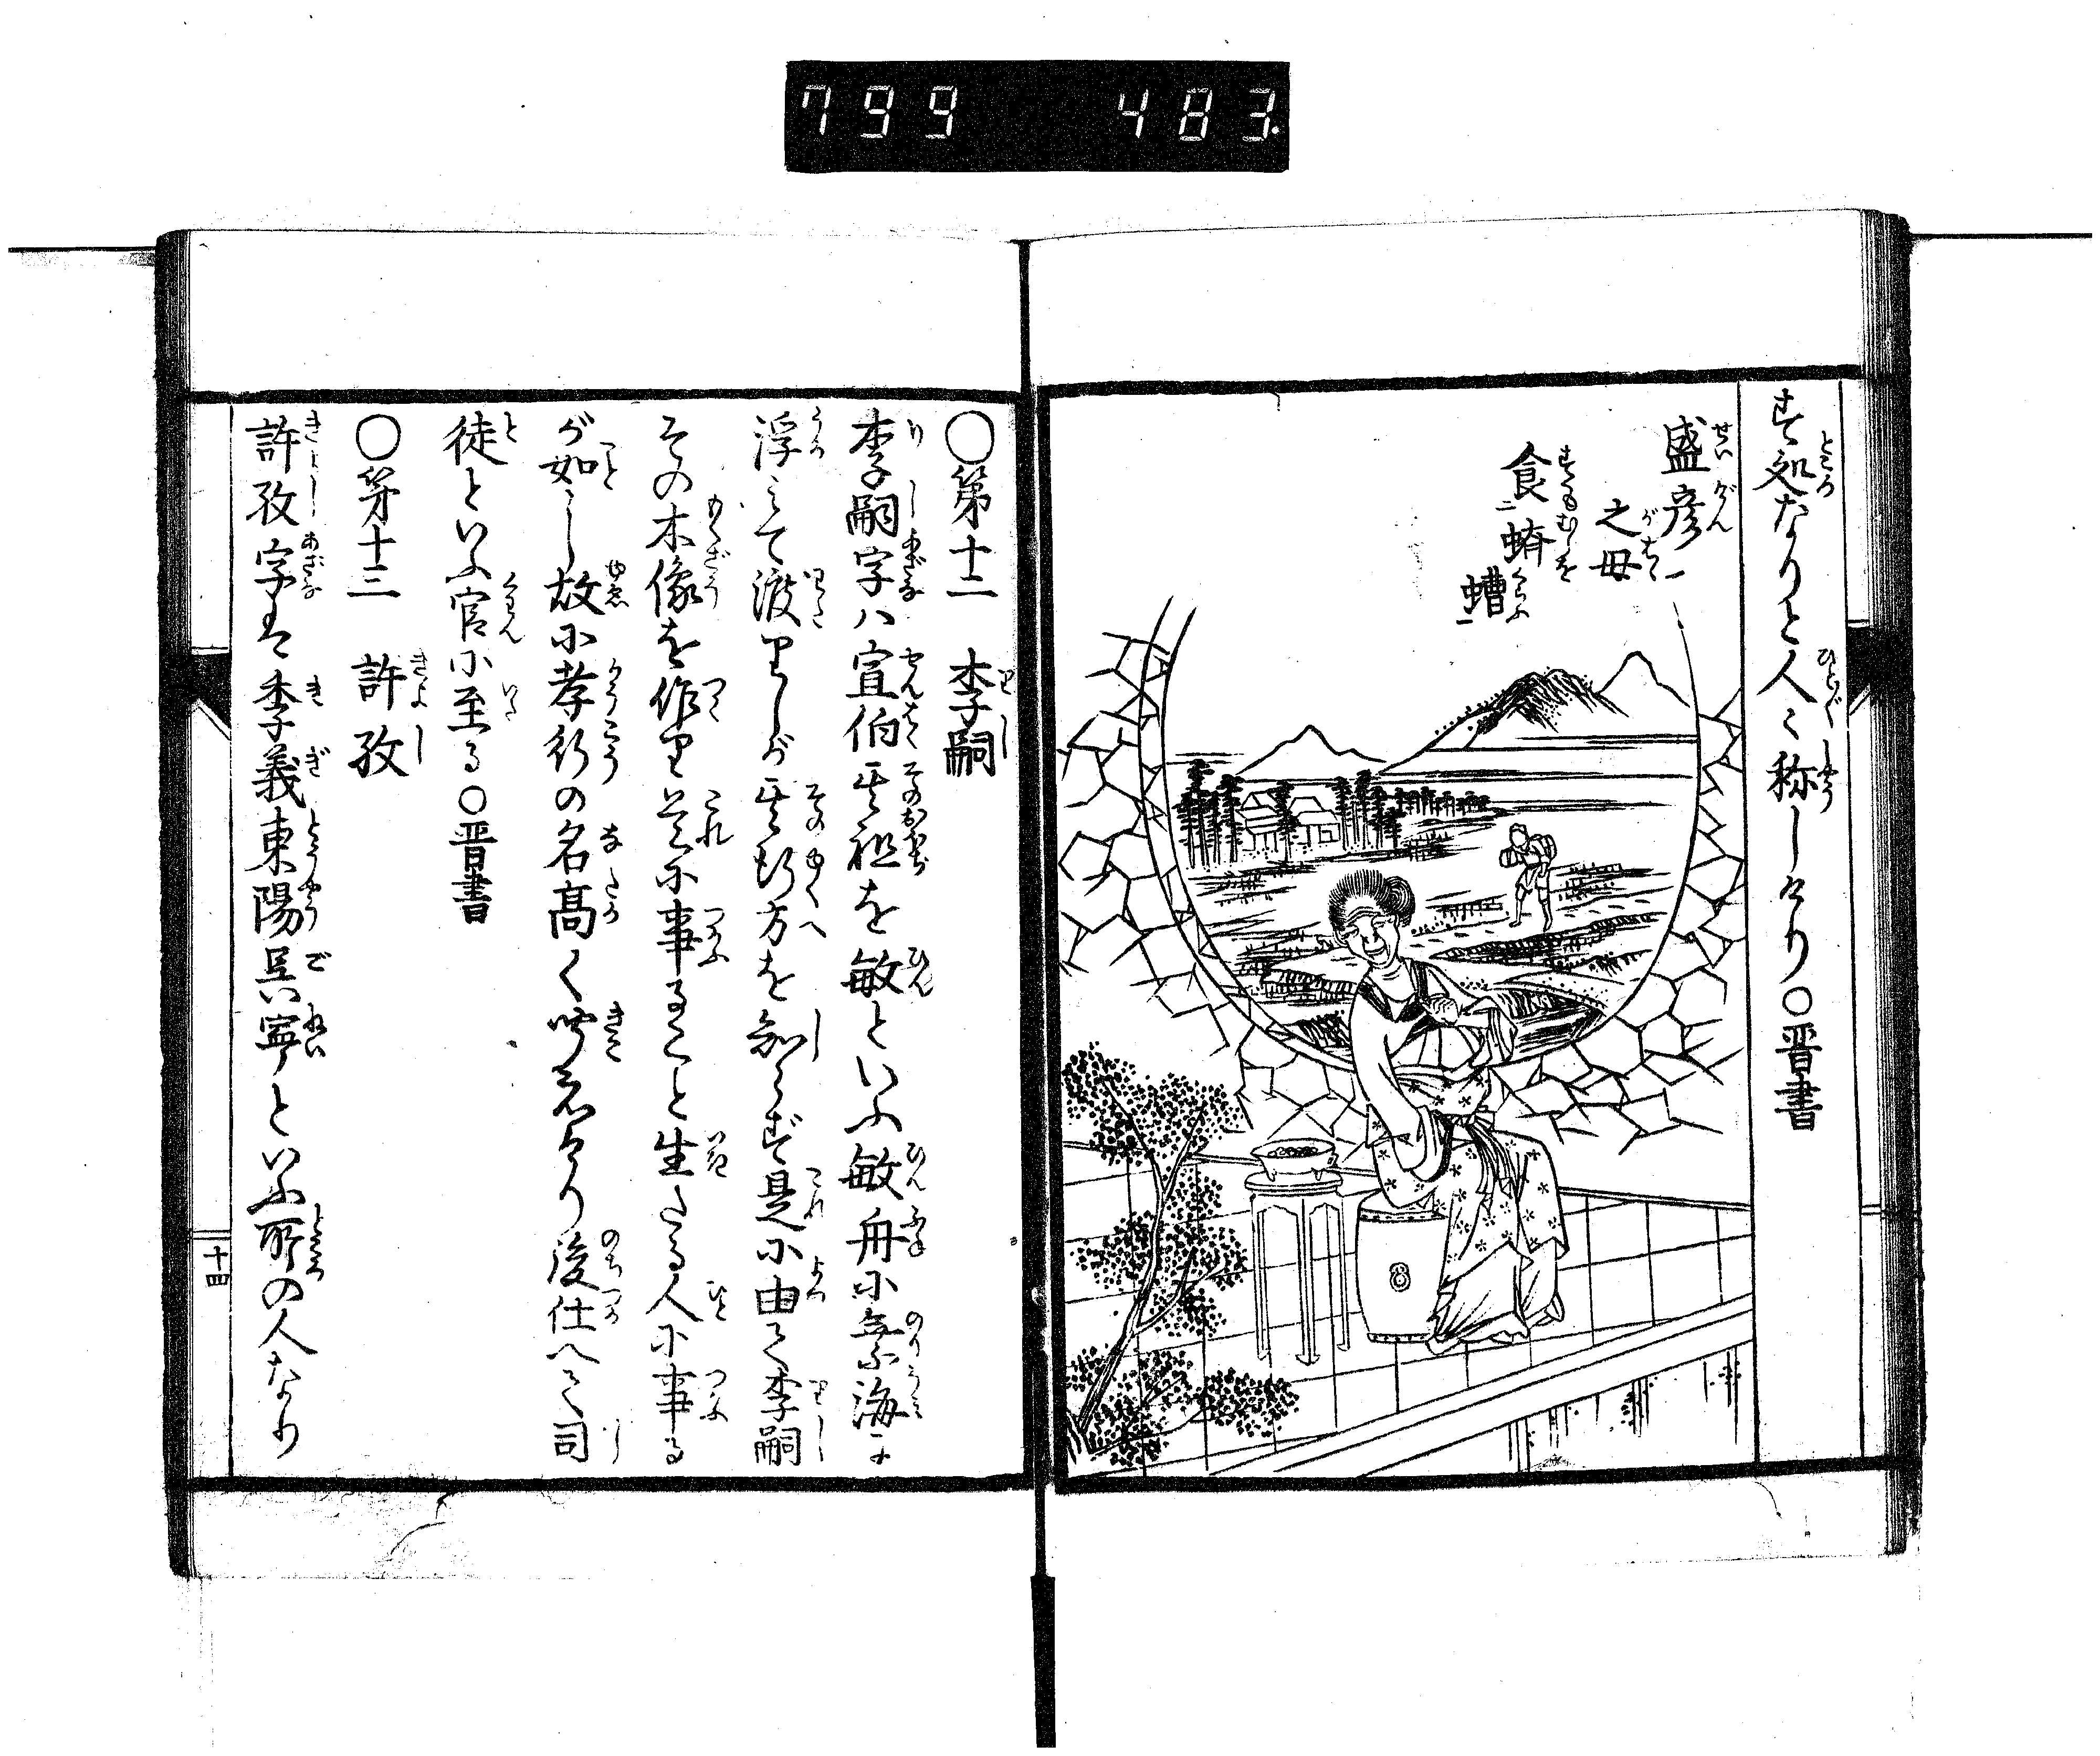 799 483
す処なりと人〻称しけり〇晋書
盛彦
之母
食二蠐
螬一
〇第十二 李嗣
李嗣字ハ宣伯其祖を敏といふ敏舟に乗海に
浮みて渡りしが其行方を知らず是に由て李嗣
その木像を作り是に事ること生たる人に事る
が如くし故に孝行の名高く聞えけり後仕へて司
徒といふ官に至る〇晋書
〇第十三 許孜
許孜字は季義東陽呉寧といふ所の人なり
十四